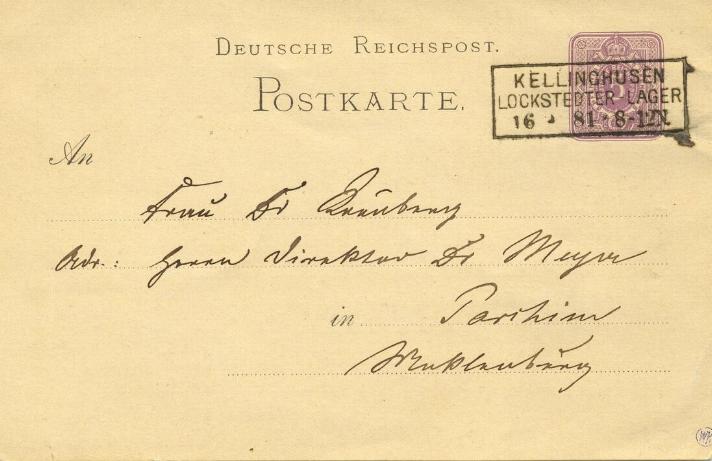 DEUTSCHE REICHSPOST.
POSTKARTE.
KELLINGHUSEN
LOCKSTEDTER-LAGER
16 81 8-12N.
An
Frau Dr Kreuberg
Adr.: Herrn Direktor Dr Meyer
in Parchim
Meklenburg